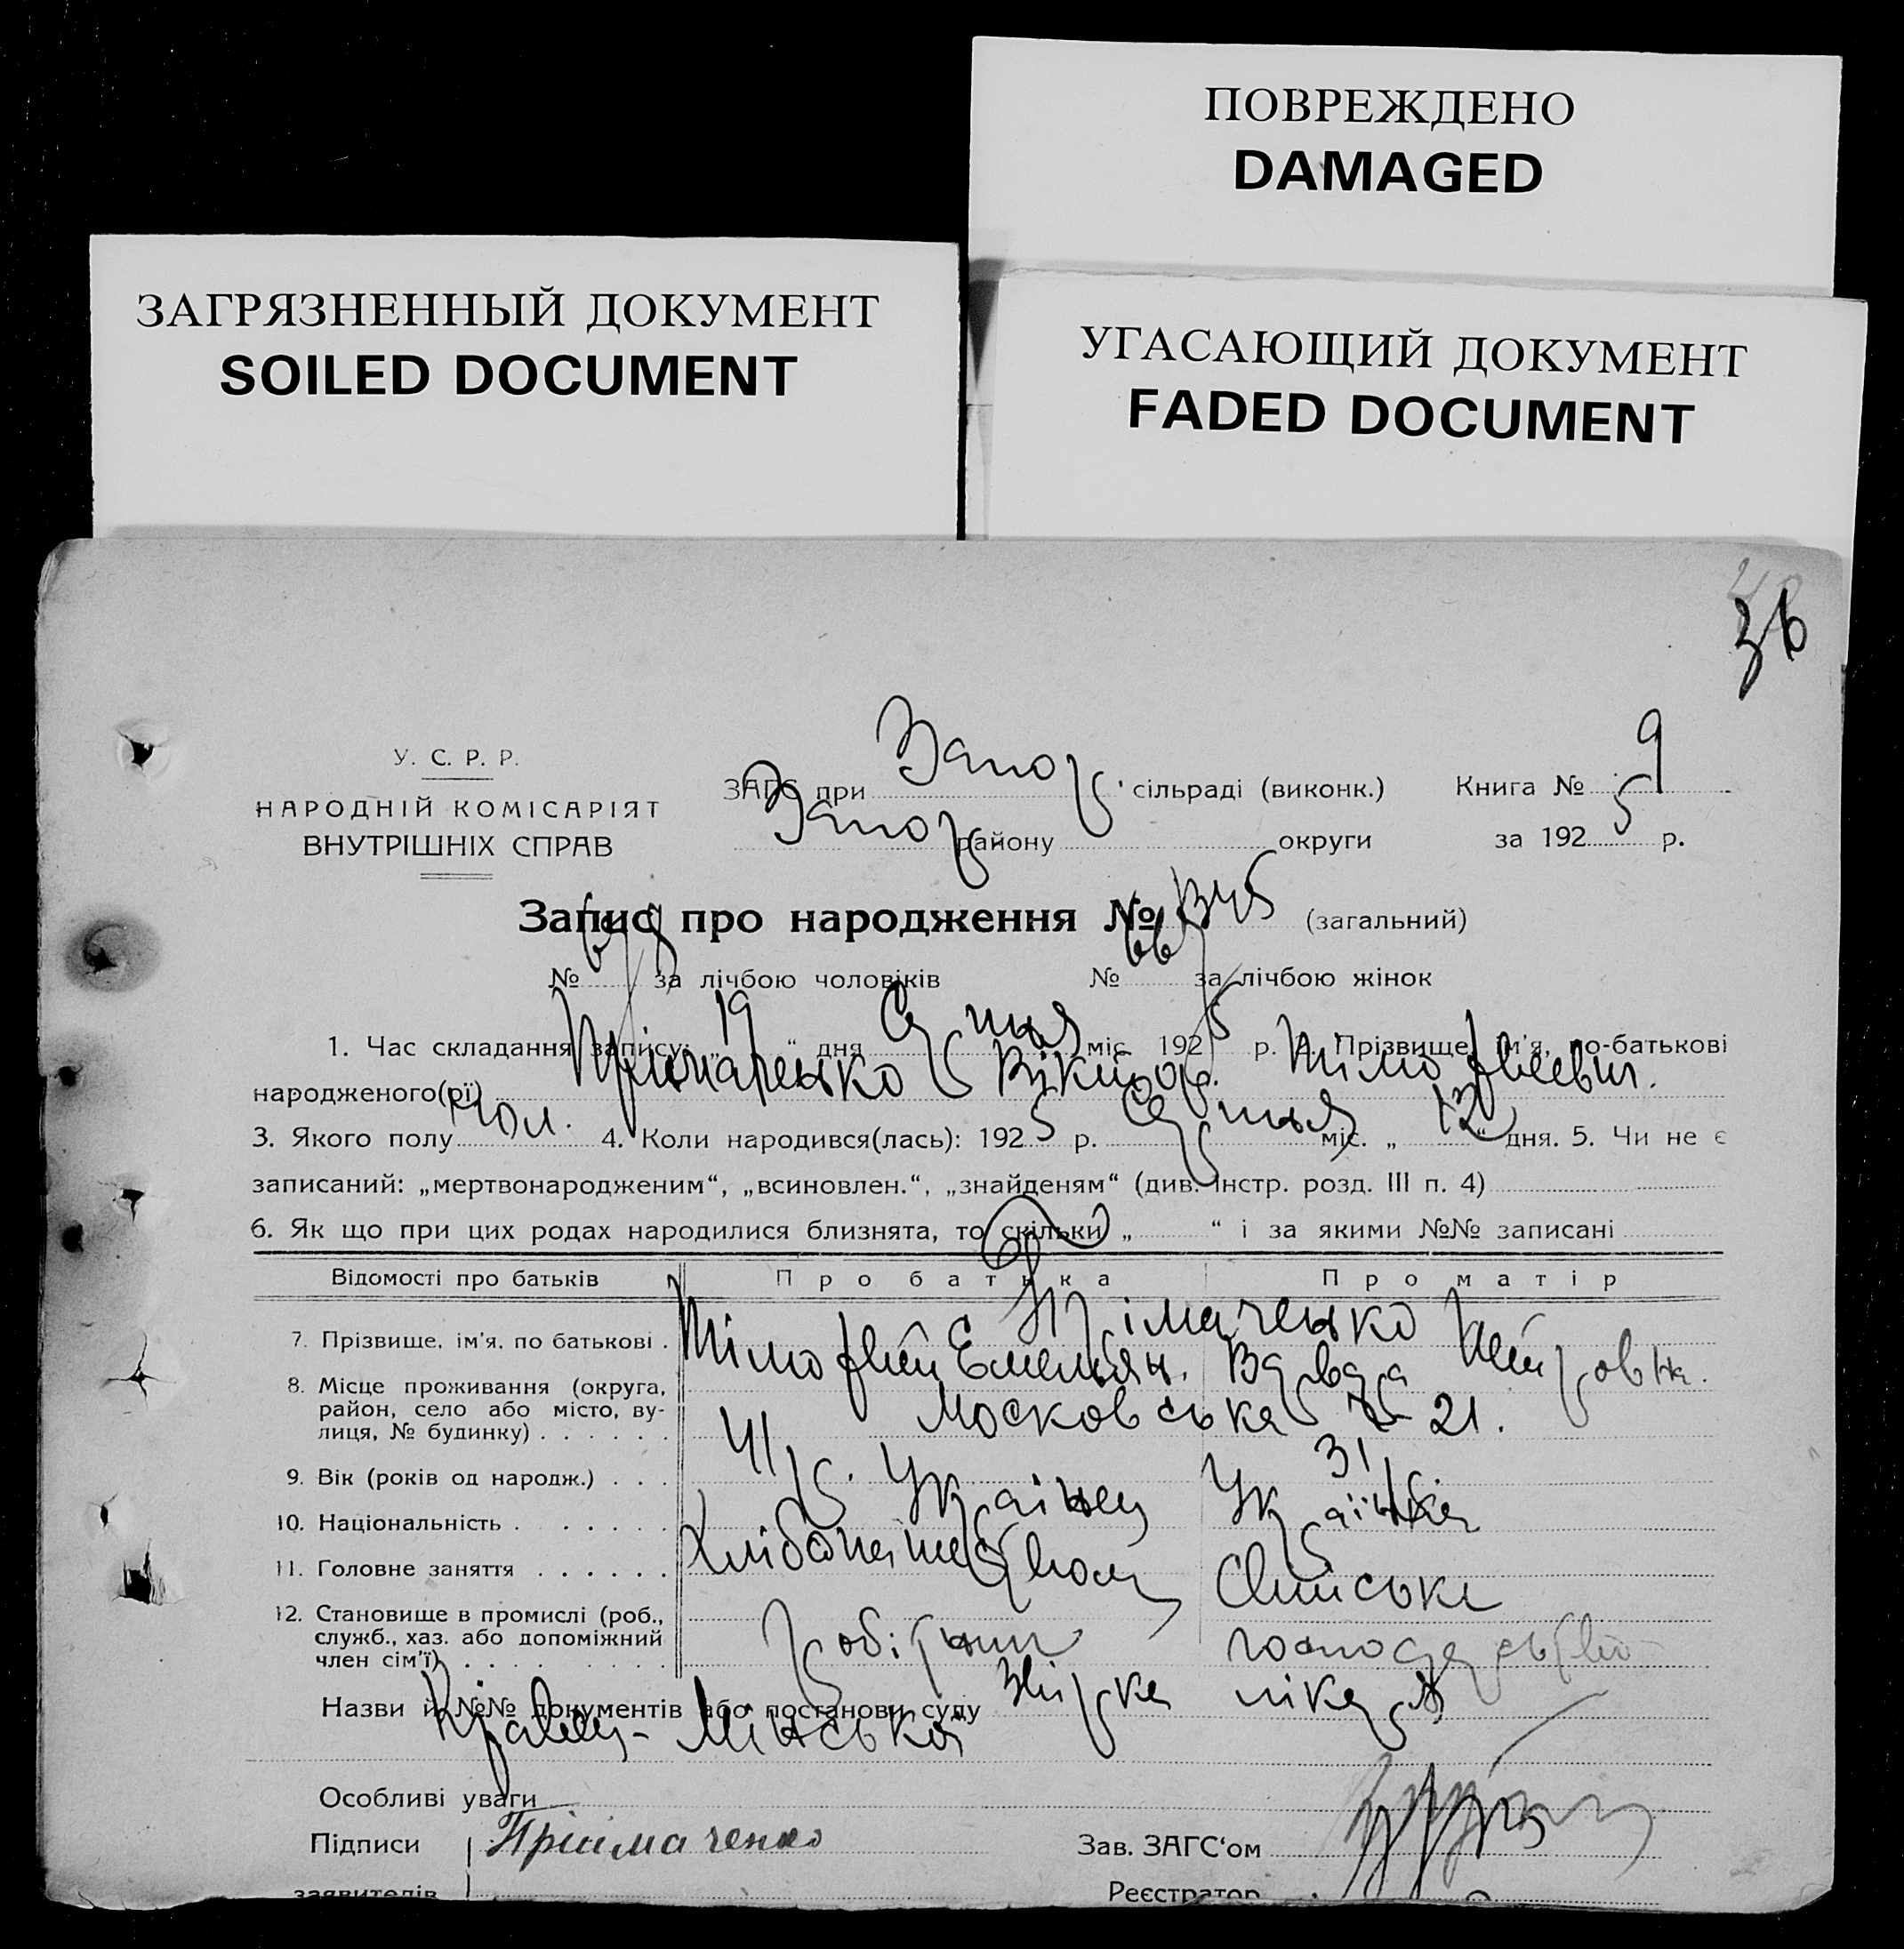 ПОВРЕЖДЕНО
DAMAGED
ЗАГРЯЗНЕННЫЙ ДОКУМЕНТ
SOILED DOCUMENT
УГАСАЮЩИЙ ДОКУМЕНТ
FADED DOCUMENT
36
У. С. Р. Р.
НАРОДНІЙ КОМІСАРІЯТ
ВНУТРІШНІХ СПРАВ
ЗАГС при Запор. сільраді (виконк.) Книга № 9
Запор району округи за 1925 р.
Запис про народження № 1345 (загальний)
№ за лічбою чоловіків № за лічбою жінок
1. Час складання запису: „19“ дня Серпня міс. 1925 р. 2. Прізвище, ім'я, по-батькові
народженого(ої) Приймаченко Віктор Тімофієевич.
3. Якого полу Чол. 4. Коли народився(лась): 1925 р. Серпня міс. „12“ дня. 5. Чи не є
записаний: „мертвонародженим“, „всиновлен.“, „знайденям“ (див. Інстр. розд. III п. 4)
6. Як що при цих родах народилися близнята, то скільки „ “ і за якими №№ записані
Відомості про батьків Про батька Про матір
7. Прізвище, ім'я, по батькові . Приймаченко
Тімофій Емельян. Варвара Петровна.
8. Місце проживання (округа,
район, село або місто, вулиця, № будинку) . . . . . . Московська 21.
9. Вік (років од народж.) . . . 41 р. 31 р.
10. Національність . . . . . . Українец Українка
11. Головне заняття . . . . . . Хатнє
12. Становище в промислі (роб.,
служб., хаз. або допоміжний
член сім'ї) . . . . . . робітник господарство
Назви й №№ документів або постанови суду лікаря
Особливі уваги
Підписи Приймаченко Зав. ЗАГС'ом
заявителів Реєстратор